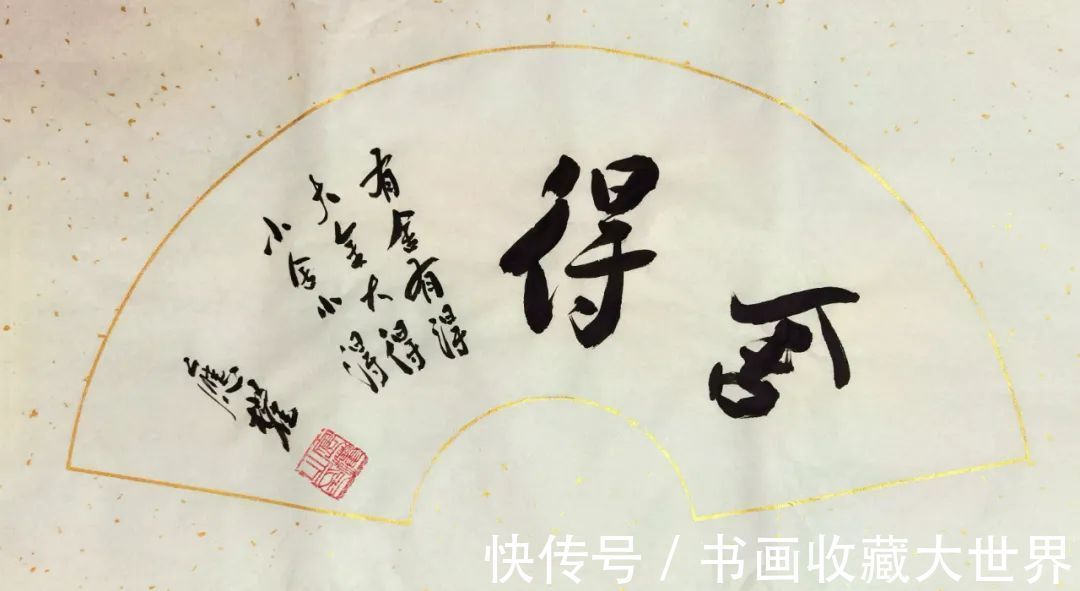 舍得
有舍有得
大舍大得
小舍小得
快传号 / 书画收藏大世界